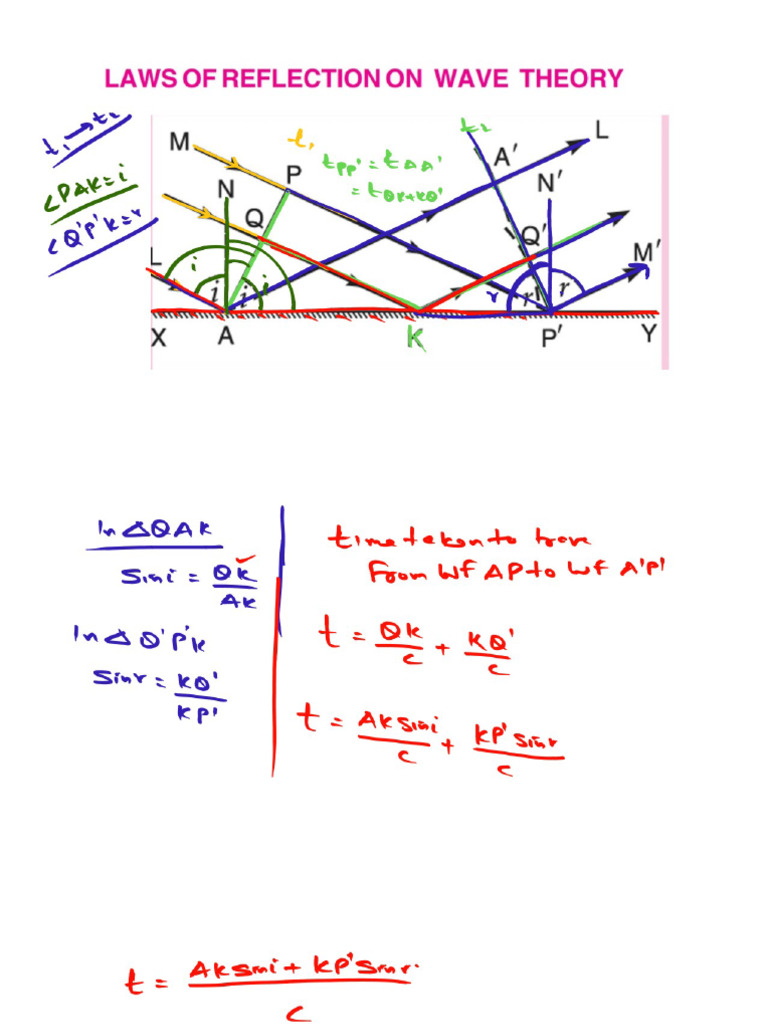 LAWS OF REFLECTION ON WAVE THEORY
t₁→t₂
∠PAK=i
∠Q'P'K=r
M
t₁
t₂
L
tPP' = tAA'
= tQK+KQ'
P
A'
N
N'
Q
Q'
M'
L
i
i
i
i
r
r
r
X
A
K
P'
Y
In △QAK
Sin i = QK/AK
In △Q'P'K
Sin r = KQ'/KP'
time taken to trave
From WF AP to WF A'P'
t = QK/c + KQ'/c
t = AK sin i/c + KP' sin r/c
t = AK sin i + KP' sin r/c